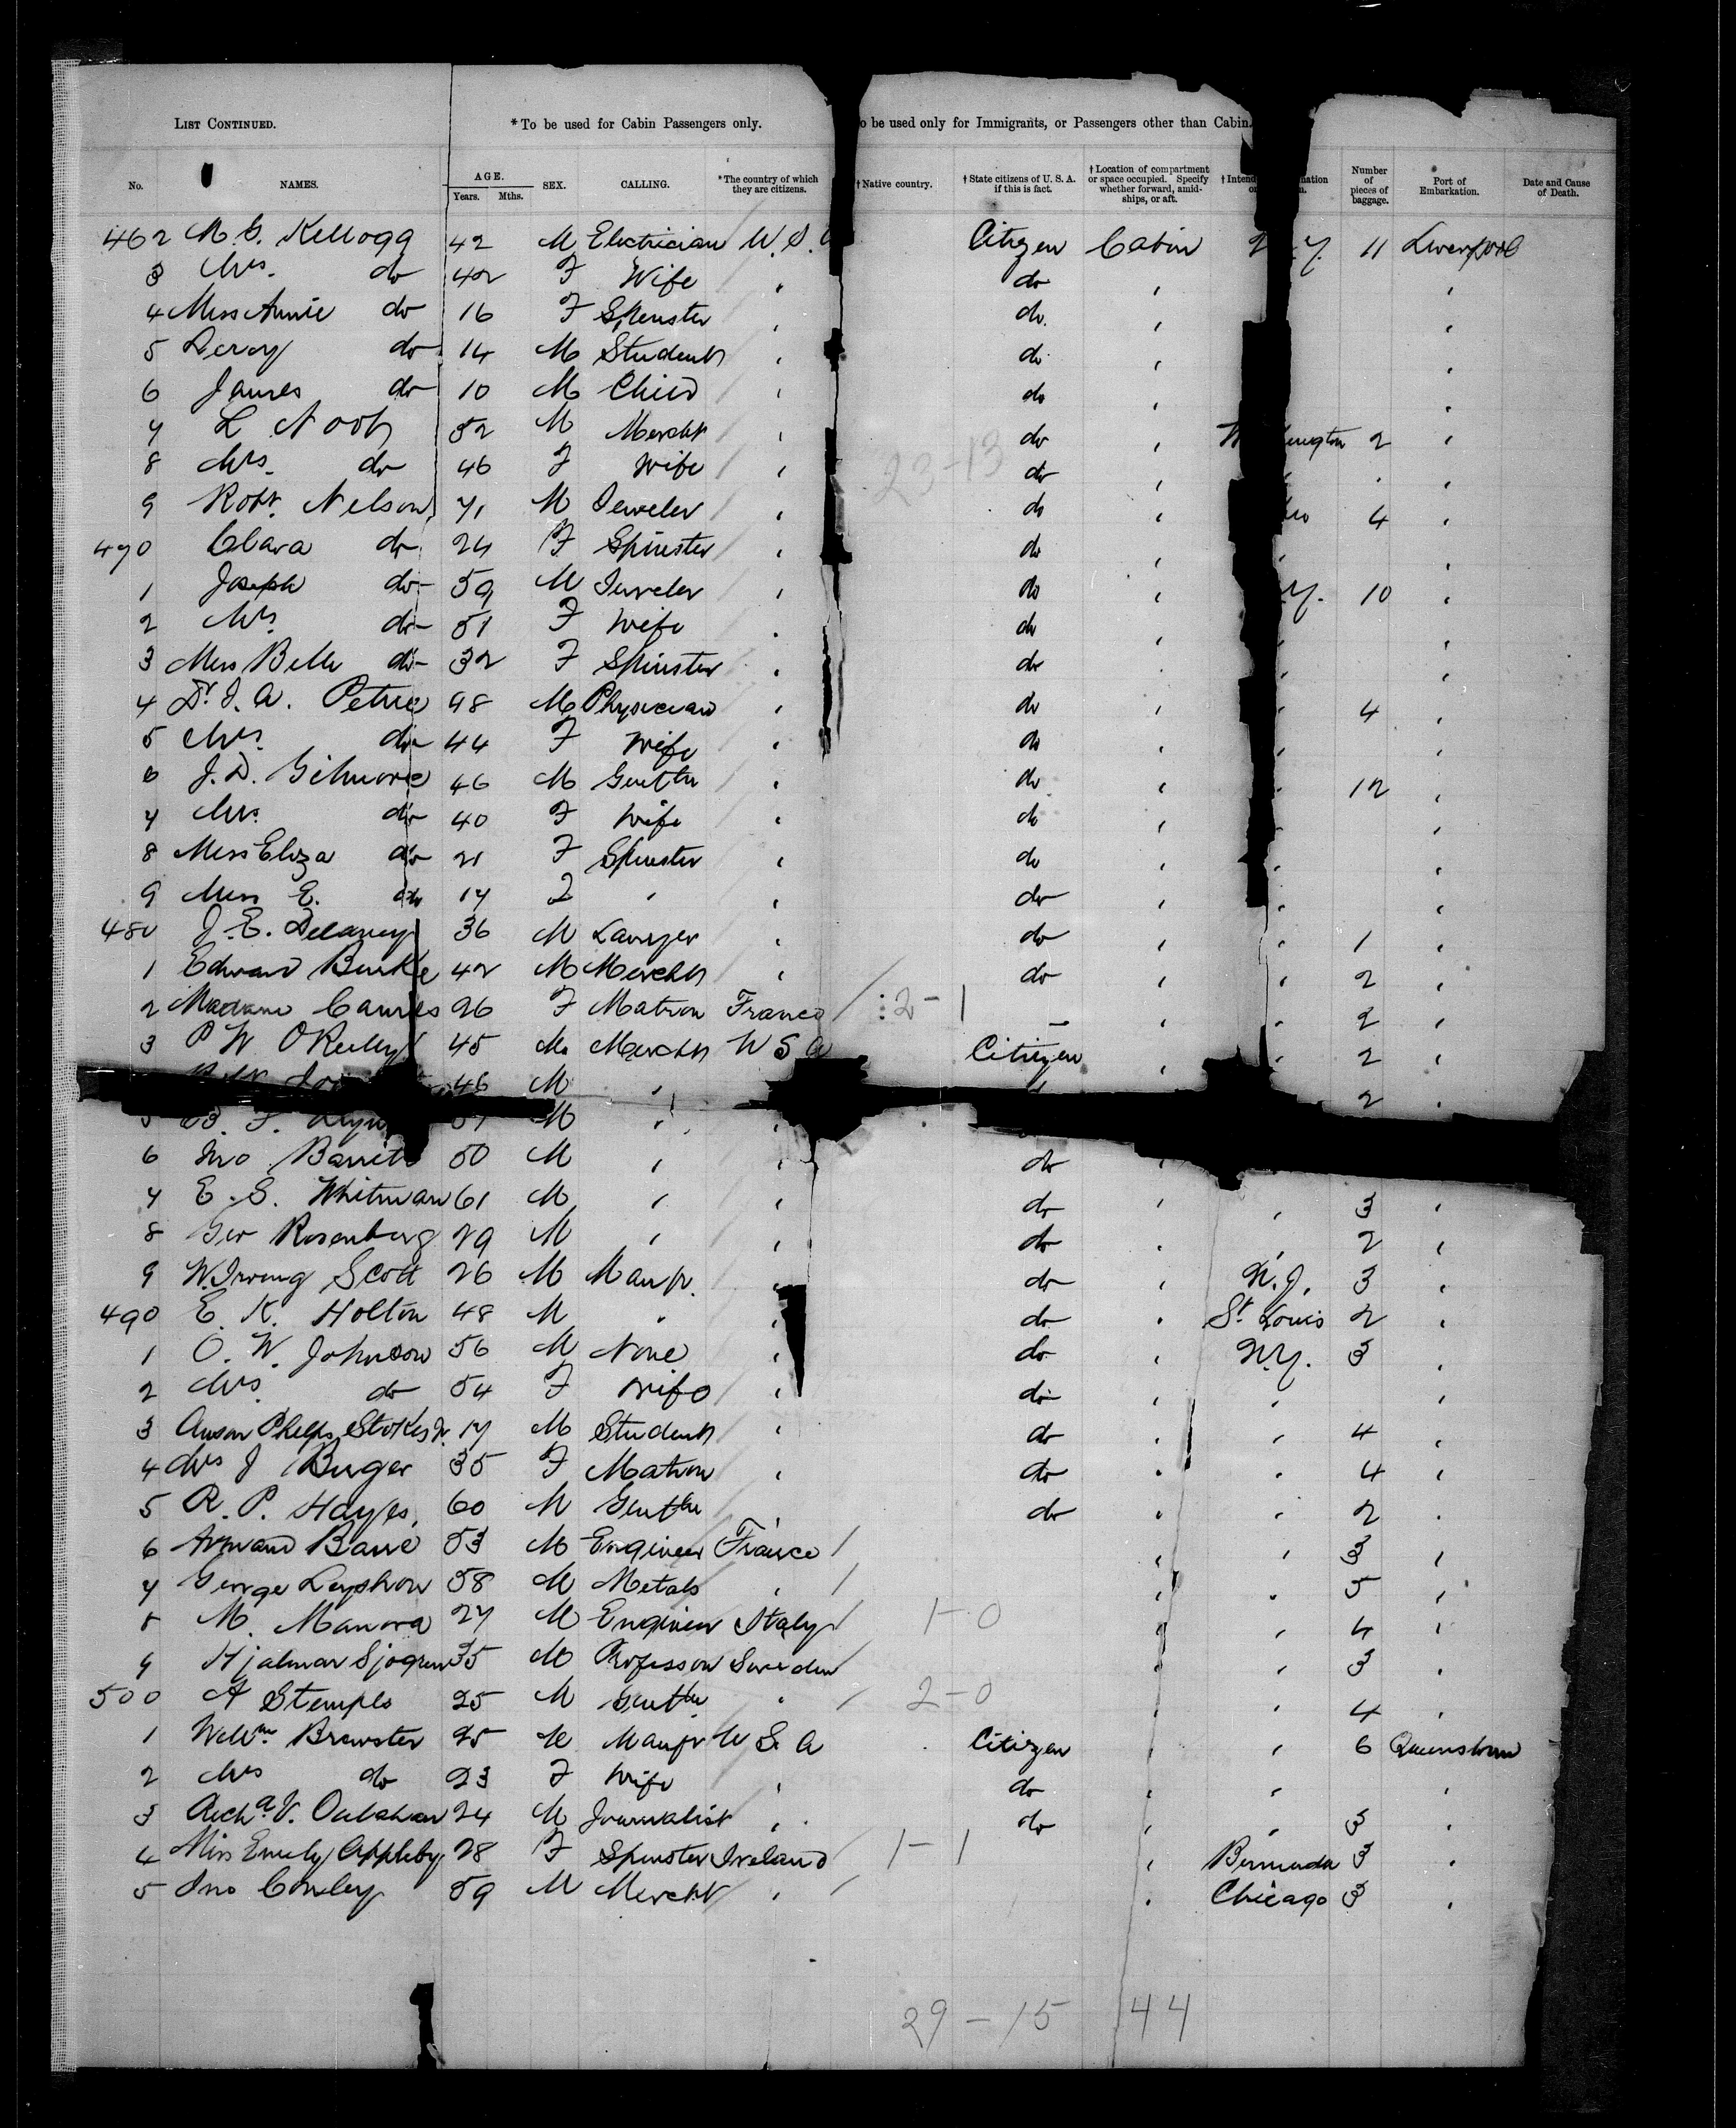 LIST CONTINUED. *To be used for Cabin Passengers only. o be used only for Immigrants, or Passengers other than Cabin.
No. NAMES. AGE. Years. Mths. SEX. CALLING. *The country of which they are citizens. †Native country. †State citizens of U. S. A. if this is fact. †Location of compartment or space occupied. Specify whether forward, amid-ships, or aft. †Intend Number of pieces of baggage. Port of Embarkation. Date and Cause of Death.
462 Kellogg 42 M Electrician U.S. Citizen Cabin Y. 11 Liverpool
3 Mrs. do 42 F Wife " do "  "
4 Miss Annie do 16 F Spinster " do. " "
5 Leroy do 14 M Student " do " "
6 James do 10 M Child " do " "
7 L 52 M Mercht " do " W ington 2 "
8 Mrs. do 46 F Wife " 23-13 do " " "
9 Robt. Nelson 71 M Jeweler " do " 4 "
470 Clara do 24 F Spinster " do " " "
1 Joseph do 59 M Jeweler " do " Y. 10 "
2 Mrs. do 51 F Wife " do " " "
3 Miss Belle do 32 F Spinster " do " " "
4 Dr. J. A. Petrie 48 M Physician " do " " 4 "
5 Mrs. do 44 F Wife " do " " "
6 J. D. Gilmore 46 M Gentln " do " " 12 "
7 Mrs. do 40 F Wife " do " "
8 Miss Eliza do 21 F Spinster " do " " "
9 Miss E. do 17 F " " do " " "
480 J. E. Delaney 36 M Lawyer " do " " 1 "
1 Edward Burke 42 M Mercht " do " " 2 "
2 Madame 26 F Matron France 2-1 — " " 2 "
3 P W OReilly 45 M Mercht U S A Citizen " " 2 "
46 M " 2 "
5 F. M " "
6 Jno 50 M " " do "
7 E. S. Whitman 61 M " " do " " 3 "
8 Geo Rosenberg 29 M " " do " " 2 "
9 W. Irving Scott 26 M Manfr. " do " N.J. 3 "
490 E. K. Holton 48 M " " do " St. Louis 2 "
1 O. W. Johnson 56 M None " do " N.Y. 3 "
2 Mrs. do 54 F Wife " do " " "
3 Anson Phelps Stokes Jr. 17 M Student " do " " 4 "
4 Mrs J Burger 35 F Matron " do " " 4 "
5 R. P. Hayes. 60 M Gentln " do " " 2 "
6 Armand 53 M Engineer France " " 3 "
7 George 58 M Metals " " " 5 "
8 M. Manora 27 M Engineer Italy 1-0 " " 4 "
9 Hjalmar Sjogren 35 M Professor Sweden " " 3 "
500 A Stemple 25 M Gentln " 2-0 " " 4 "
1 Willm. Brewster 25 M Manfr U S. A Citizen " " 6 Queenstown
2 Mrs do 23 F Wife " do " " "
3 Richd. V. Oulahan 24 M Journalist " do " " 3 "
4 Miss Emily Appleby 28 F Spinster Ireland 1-1 " Bermuda 3 "
5 Jno Conley 59 M Mercht " " Chicago 3 "
29-15 44